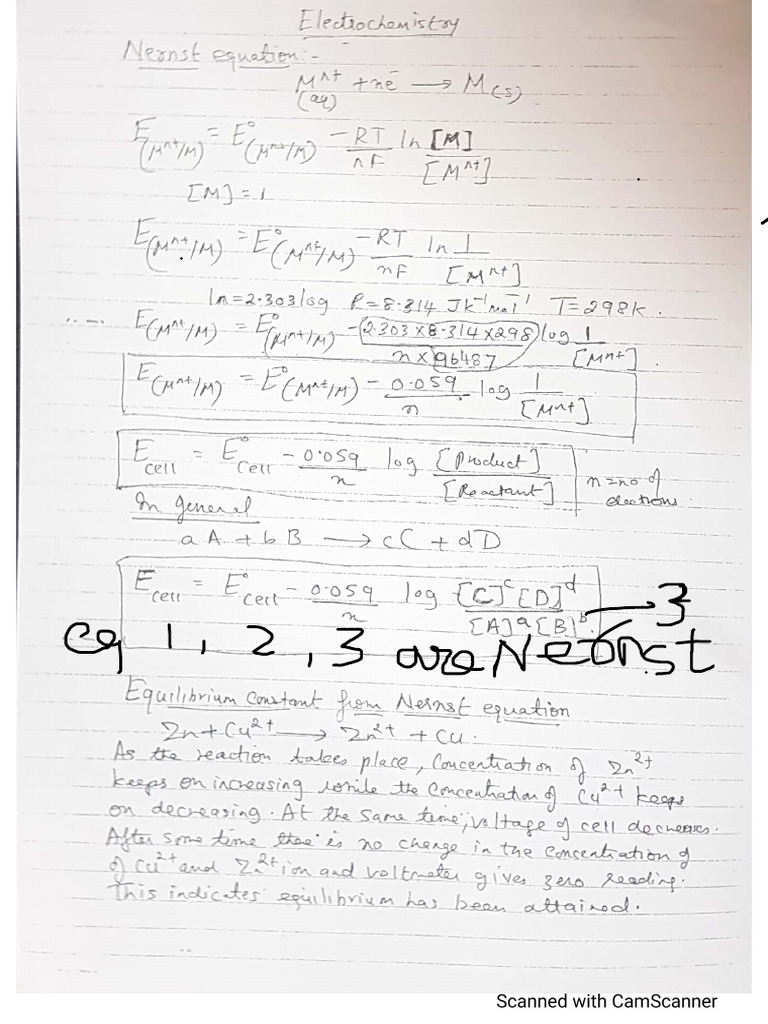 Electrochemistry
Nernst equation:-
Mⁿ⁺(aq) + ne⁻ → M(s)
E(Mⁿ⁺/M) = E°(Mⁿ⁺/M) - RT/nF ln [M]/[Mⁿ⁺]
[M] = 1
E(Mⁿ⁺/M) = E°(Mⁿ⁺/M) - RT/nF ln 1/[Mⁿ⁺]
ln = 2.303 log R = 8.314 JK⁻¹mol⁻¹ T = 298K.
E(Mⁿ⁺/M) = E°(Mⁿ⁺/M) - 2.303×8.314×298/n×96487 log 1/[Mⁿ⁺]
E(Mⁿ⁺/M) = E°(Mⁿ⁺/M) - 0.059/n log 1/[Mⁿ⁺]
Ecell = E°cell - 0.059/n log [Product]/[Reactant] n = no of electrons
In general
aA + bB → cC + dD
Ecell = E°cell - 0.059/n log [C]ᶜ[D]ᵈ/[A]ᵃ[B]ᵇ → 3
eq 1, 2, 3 are Nernst
Equilibrium constant from Nernst equation
Zn + Cu²⁺ → Zn²⁺ + Cu.
As the reaction takes place, Concentration of Zn²⁺
keeps on increasing while the concentration of Cu²⁺ keeps
on decreasing. At the same time, voltage of cell decreases.
After some time there is no change in the concentration of
of Cu²⁺ and Zn²⁺ ion and voltmeter gives zero reading.
This indicates equilibrium has been attained.
Scanned with CamScanner